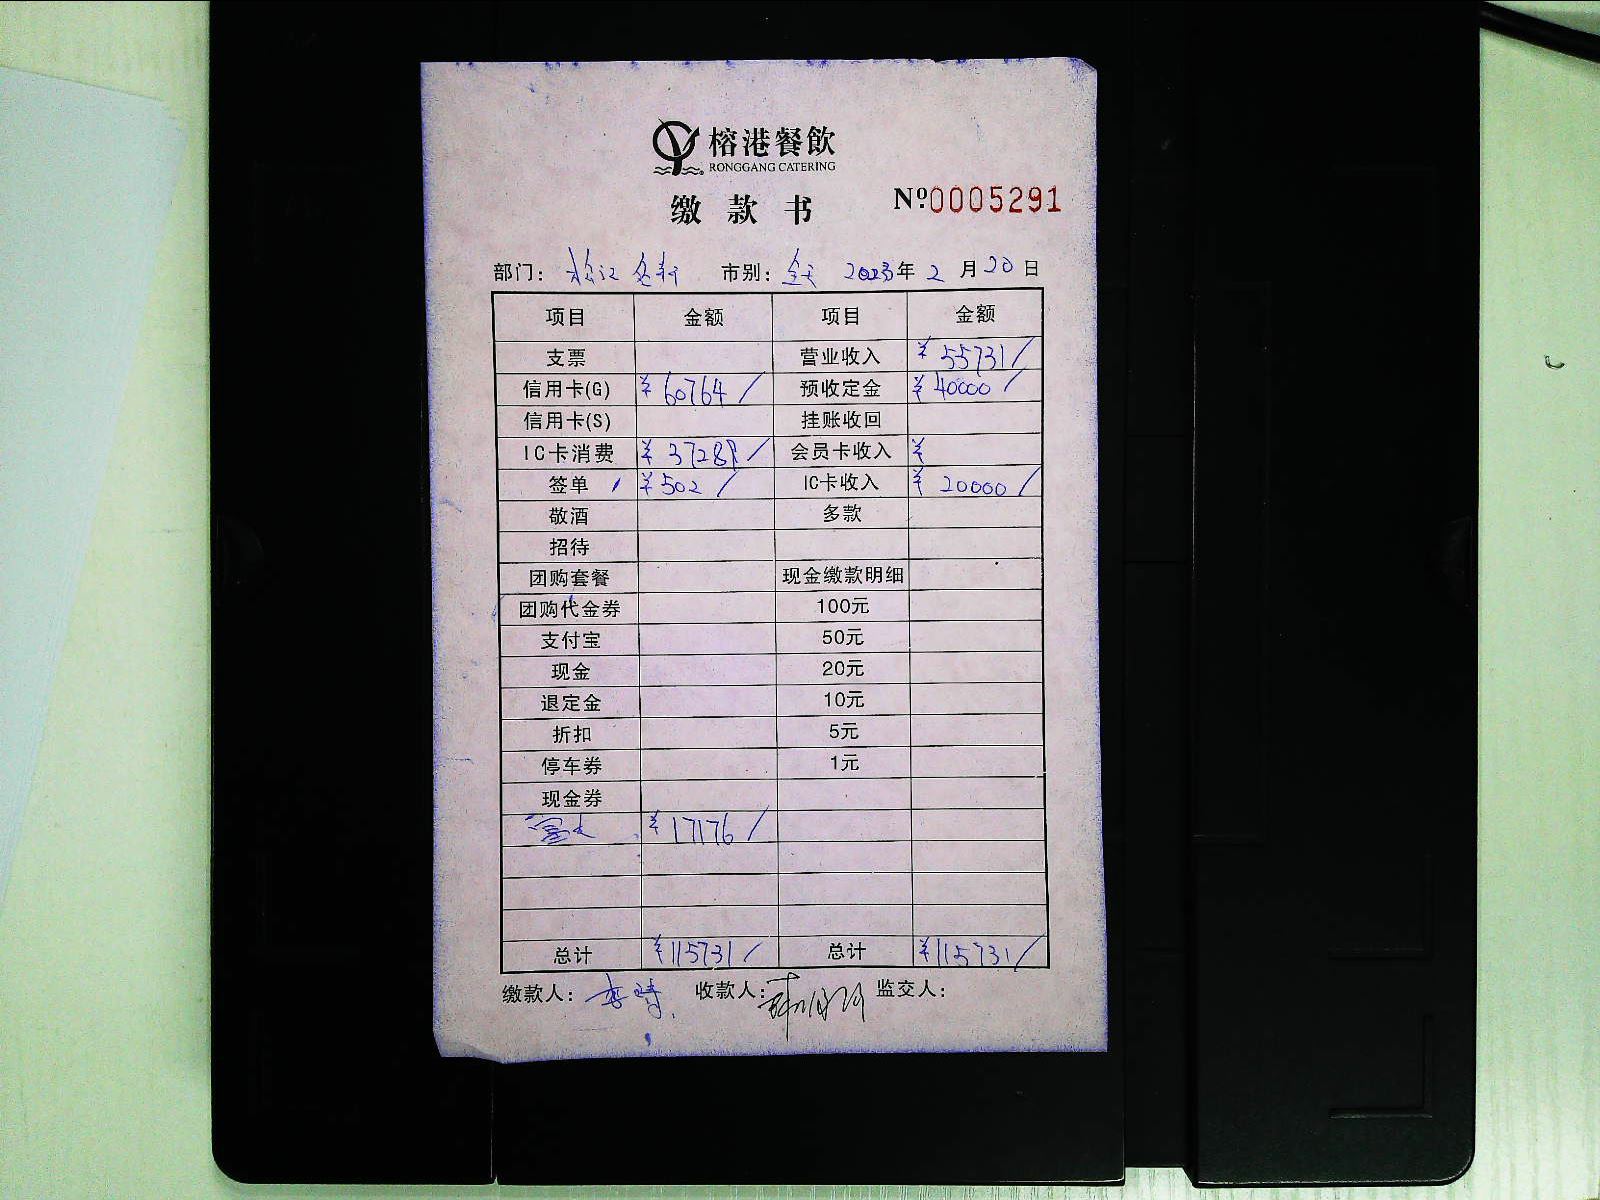 榕港餐飲
RONGGANG CATERING
缴款书 Nº0005291
部门: 松江 市别: 全天 2023年2月20日
项目 金额 项目 金额
支票 营业收入 ¥55731/
信用卡(G) ¥60764/ 预收定金 ¥40000/
信用卡(S) 挂账收回
IC卡消费 ¥37289/ 会员卡收入 ¥
签单 ¥502/ IC卡收入 ¥20000/
敬酒 多款
招待
团购套餐 现金缴款明细
团购代金券 100元
支付宝 50元
现金 20元
退定金 10元
折扣 5元
停车券 1元
现金券
富友 ¥17176/
总计 ¥115731/ 总计 ¥115731/
缴款人: 收款人: 监交人: